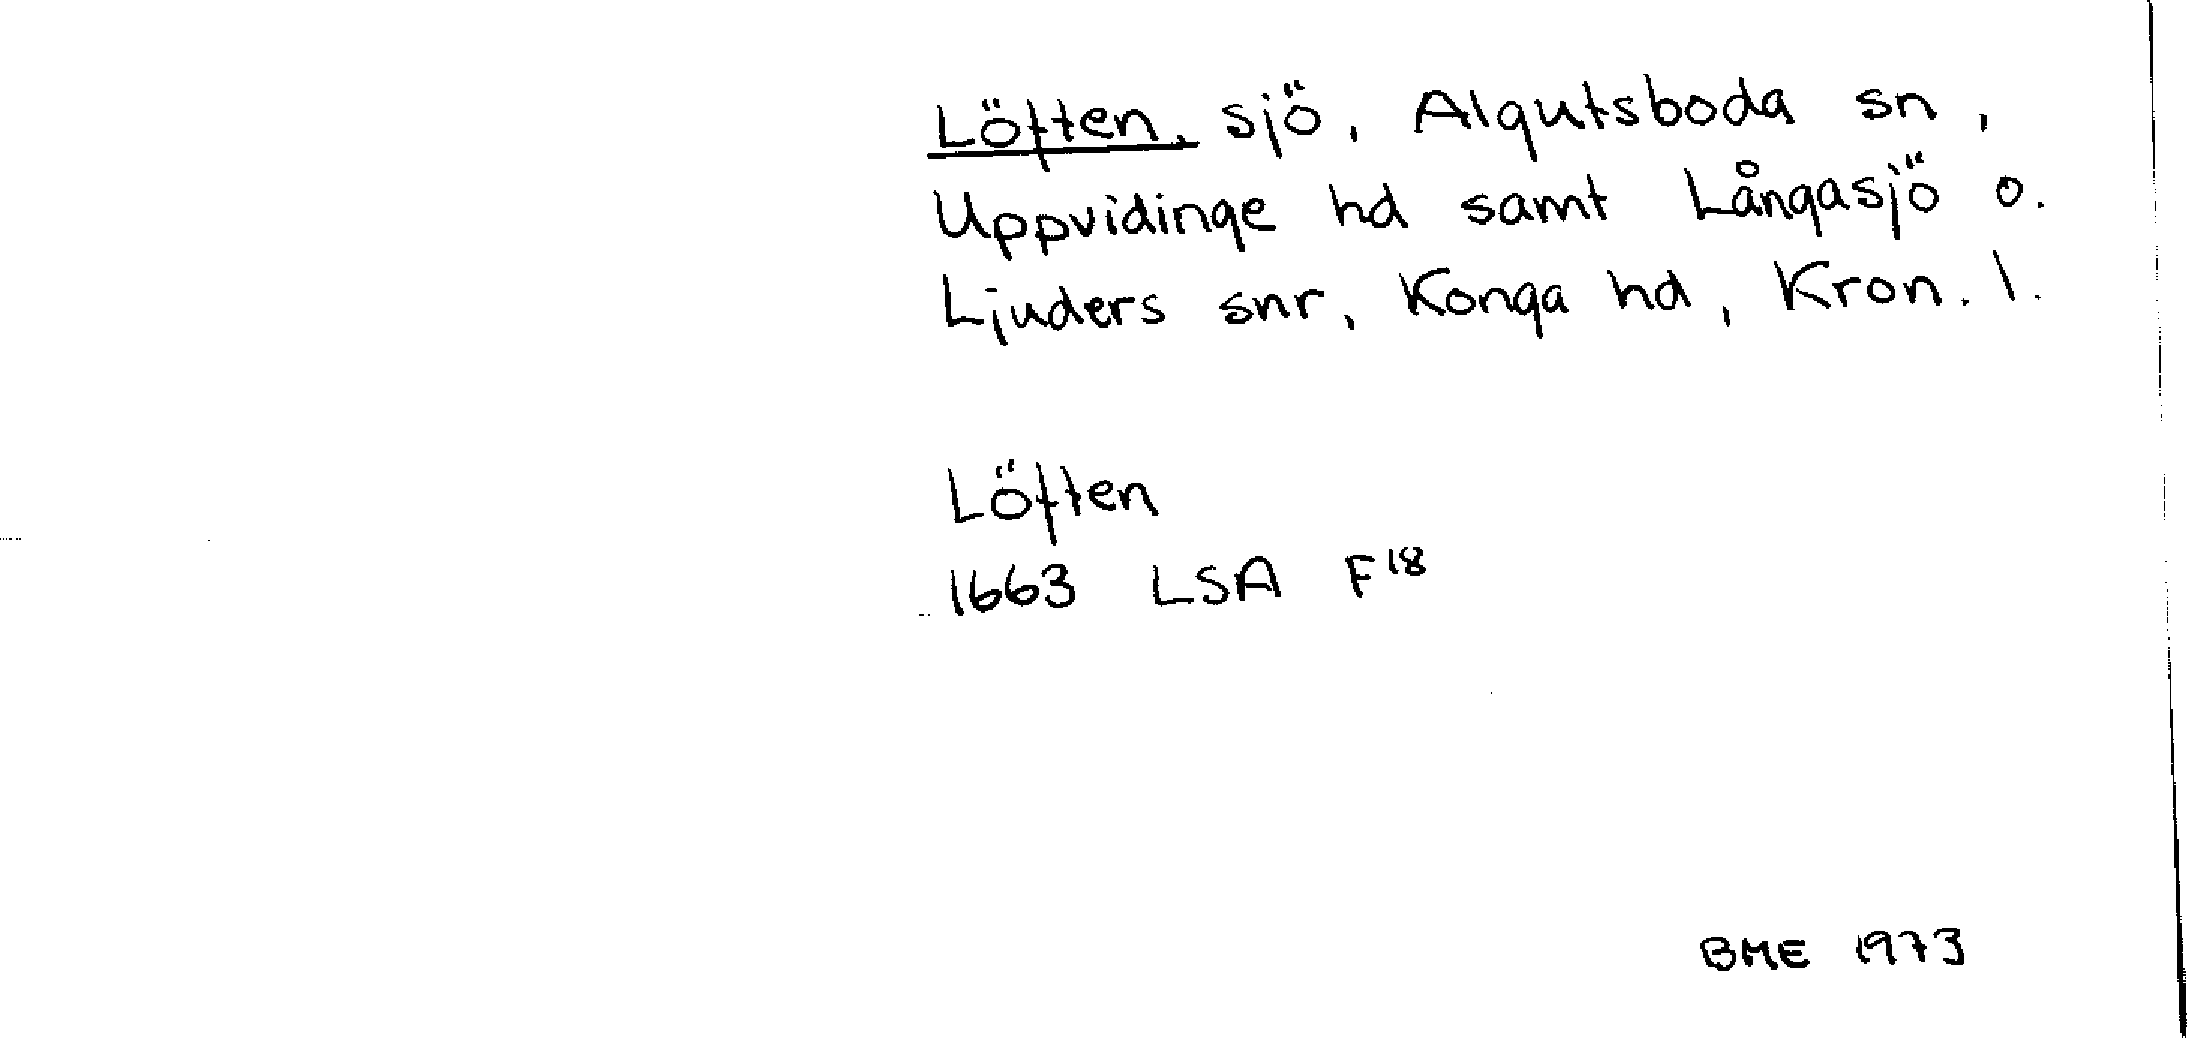 Löften, sjö, Algutsboda sn,
Uppvidinge hd samt Långasjö o.
Ljuders snr, Konga hd, Kron. l.
Löften
1663 LSA F18
BME 1973